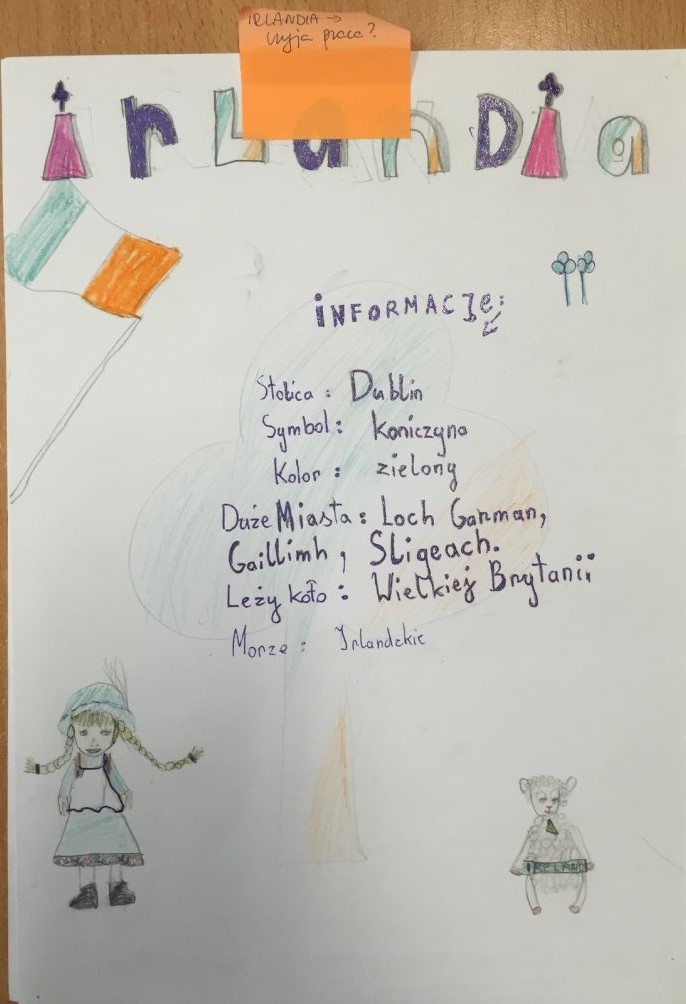 IRLANDIA →
czyja praca?
irLanDia
iNFORMACJe:
Stolica : Dublin
Symbol : koniczyna
Kolor : zielony
Duże Miasta : Loch Garman,
Gaillimh , Sligeach.
Leży koło : Wielkiej Brytanii
Morze : Irlandzkie